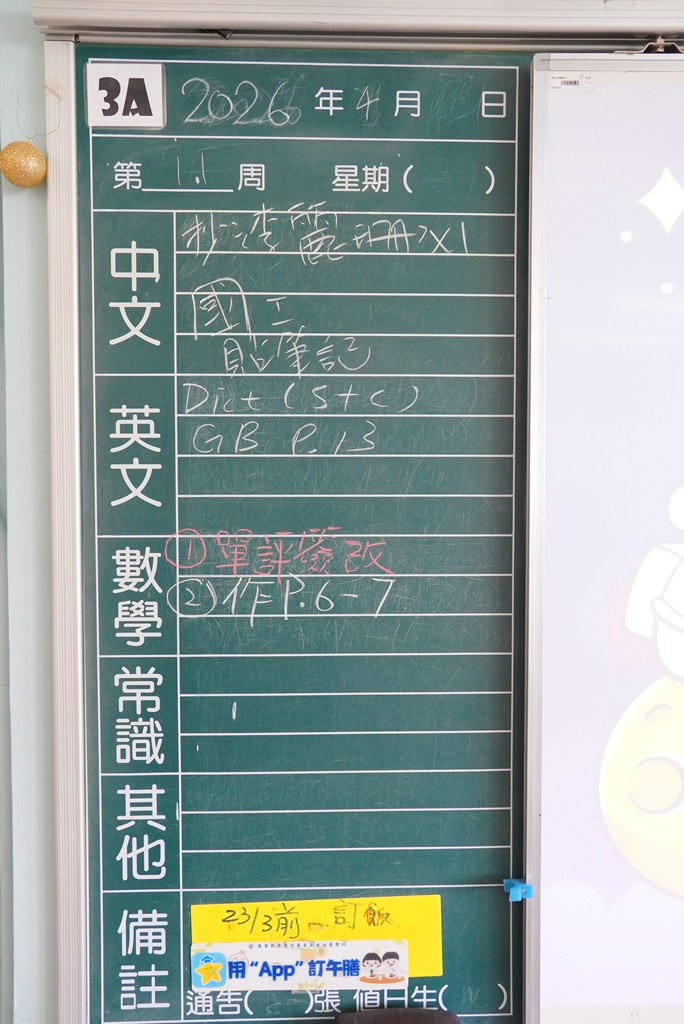 3A 2026年4月 日
第11周 星期( )
中文
抄:李麗珊?X1
國工
貼筆記
英文
Dict (S+C)
GB P.13
數學
①單評簽改
②作P.6-7
常識
其他
備註
23/3前 訂飯
用"App"訂午膳
通告( )張 值日生( )